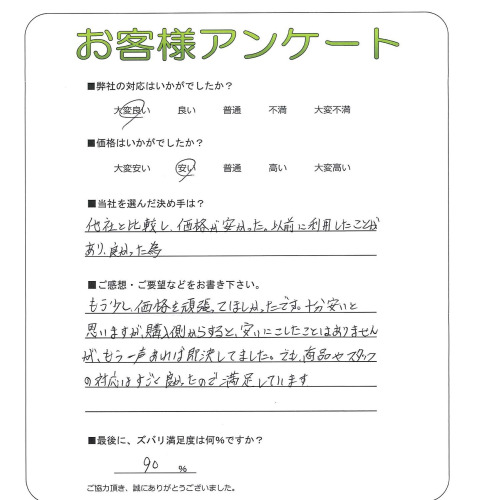 お客様アンケート
■弊社の対応はいかがでしたか？
大変良い 良い 普通 不満 大変不満
■価格はいかがでしたか？
大変安い 安い 普通 高い 大変高い
■当社を選んだ決め手は？
他社と比較し、価格が安かった。以前に利用したことが
あり、良かった為
■ご感想・ご要望などをお書き下さい。
もう少し、価格を頑張ってほしかったです。十分安いと
思いますが、購入側からすると、安いにこしたことはありません
が、もう一声あれば即決してました。でも、商品やスタッフ
の対応はすごく良かったので満足しています
■最後に、ズバリ満足度は何%ですか？
90 %
ご協力頂き、誠にありがとうございました。